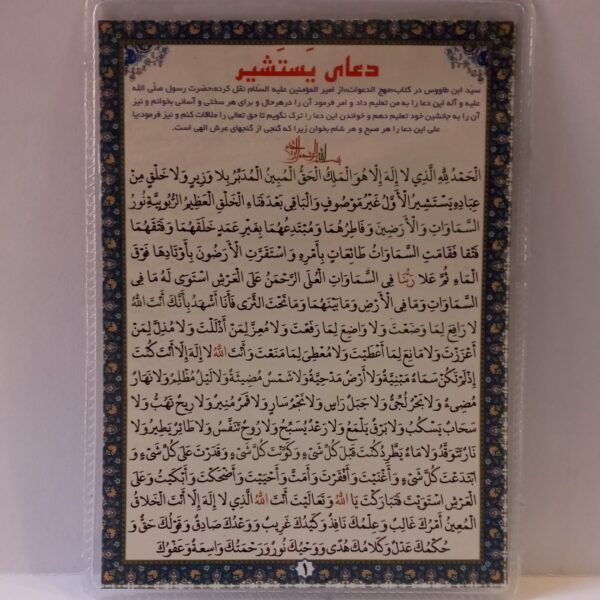 دعای یَستَشیر
سید ابن طاووس در کتاب«مهج الدعوات»از امیر المؤمنین علیه السلام نقل کرده:حضرت رسول صلّی الله
علیه و آله این دعا را به من تعلیم داد و امر فرمود آن را درهرحال و برای هر سختی و آسانی بخوانم و نیز
آن را به جانشین خود تعلیم دهم و خواندن این دعا را ترک نگویم تا حق تعالی را ملاقات کنم و نیز فرمود:یا
علی این دعا را هر صبح و هر شام بخوان زیرا که گنجی از گنجهای عرش الهی است.
بسم الله الرحمن الرحیم
اَلْحَمْدُ لِلّٰهِ الَّذِي لَا إِلَهَ إِلَّا هُوَ الْمَلِكُ الْحَقُّ الْمُبِينُ الْمُدَبِّرُ بِلَا وَزِيرٍ وَلَا خَلْقٍ مِنْ
عِبَادِهِ يَسْتَشِيرُ الْأَوَّلُ غَيْرُ مَوْصُوفٍ وَالْبَاقِي بَعْدَ فَنَاءِ الْخَلْقِ الْعَظِيمُ الرُّبُوبِيَّةِ نُورُ
السَّمَاوَاتِ وَ الْأَرَضِينَ وَ فَاطِرُهُمَا وَ مُبْتَدِعُهُمَا بِغَيْرِ عَمَدٍ خَلَقَهُمَا وَ فَتَقَهُمَا
فَتْقًا فَقَامَتِ السَّمَاوَاتُ طَائِعَاتٍ بِأَمْرِهِ وَ اسْتَقَرَّتِ الْأَرَضُونَ بِأَوْتَادِهَا فَوْقَ
الْمَاءِ ثُمَّ عَلَا رَبُّنَا فِي السَّمَاوَاتِ الْعُلَى الرَّحْمَنُ عَلَى الْعَرْشِ اسْتَوَى لَهُ مَا فِي
السَّمَاوَاتِ وَ مَا فِي الْأَرْضِ وَ مَا بَيْنَهُمَا وَ مَا تَحْتَ الثَّرَى فَأَنَا أَشْهَدُ بِأَنَّكَ أَنْتَ اللهُ
لَا رَافِعَ لِمَا وَضَعْتَ وَ لَا وَاضِعَ لِمَا رَفَعْتَ وَ لَا مُعِزَّ لِمَنْ أَذْلَلْتَ وَ لَا مُذِلَّ لِمَنْ
أَعْزَزْتَ وَ لَا مَانِعَ لِمَا أَعْطَيْتَ وَ لَا مُعْطِيَ لِمَا مَنَعْتَ وَ أَنْتَ اللهُ لَا إِلَهَ إِلَّا أَنْتَ كُنْتَ
إِذْ لَمْ تَكُنْ سَمَاءٌ مَبْنِيَّةٌ وَ لَا أَرْضٌ مَدْحِيَّةٌ وَ لَا شَمْسٌ مُضِيئَةٌ وَ لَا لَيْلٌ مُظْلِمٌ وَ لَا نَهَارٌ
مُضِيءٌ وَ لَا بَحْرٌ لُجِّيٌّ وَ لَا جَبَلٌ رَاسٍ وَ لَا نَجْمٌ سَارٍ وَ لَا قَمَرٌ مُنِيرٌ وَ لَا رِيحٌ تَهُبُّ وَ لَا
سَحَابٌ يَسْكُبُ وَ لَا بَرْقٌ يَلْمَعُ وَ لَا رَعْدٌ يُسَبِّحُ وَ لَا رُوحٌ تَنَفَّسُ وَ لَا طَائِرٌ يَطِيرُ وَ لَا
نَارٌ تَتَوَقَّدُ وَ لَا مَاءٌ يَطَّرِدُ كُنْتَ قَبْلَ كُلِّ شَيْءٍ وَ كَوَّنْتَ كُلَّ شَيْءٍ وَ قَدَرْتَ عَلَى كُلِّ شَيْءٍ وَ
ابْتَدَعْتَ كُلَّ شَيْءٍ وَ أَغْنَيْتَ وَ أَفْقَرْتَ وَ أَمَتَّ وَ أَحْيَيْتَ وَ أَضْحَكْتَ وَ أَبْكَيْتَ وَ عَلَى
الْعَرْشِ اسْتَوَيْتَ فَتَبَارَكْتَ يَا اللهُ وَ تَعَالَيْتَ أَنْتَ اللهُ الَّذِي لَا إِلَهَ إِلَّا أَنْتَ الْخَلَّاقُ
الْمُعِينُ أَمْرُكَ غَالِبٌ وَ عِلْمُكَ نَافِذٌ وَ كَيْدُكَ غَرِيبٌ وَ وَعْدُكَ صَادِقٌ وَ قَوْلُكَ حَقٌّ وَ
حُكْمُكَ عَدْلٌ وَ كَلَامُكَ هُدًى وَ وَحْيُكَ نُورٌ وَ رَحْمَتُكَ وَاسِعَةٌ وَ عَفْوُكَ
۱